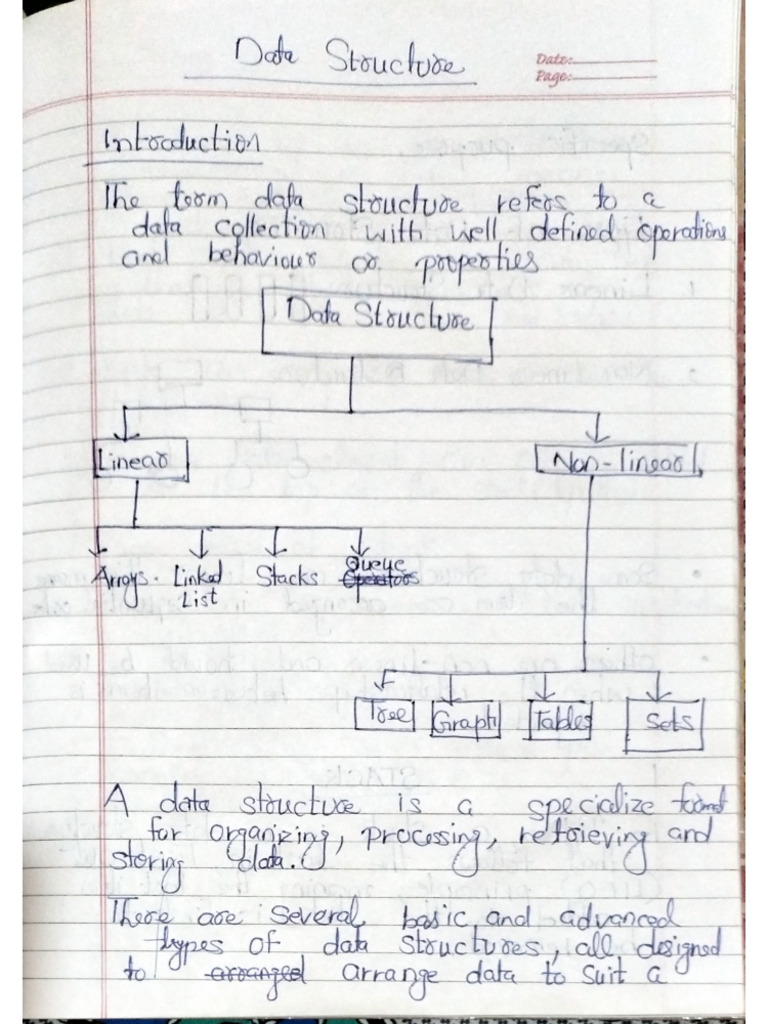 Data Structure
Date:
Page:
Introduction
The term data structure refers to a
data collection with well defined operations
and behaviour or properties
Data Structure
Linear
Non-linear
Arrays. Linked List Stacks Queue
Tree Graph Tables Sets
A data structure is a specialize format
for organizing, processing, retrieving and
storing data.
There are several basic and advanced
types of data structures, all designed
to arranged arrange data to suit a